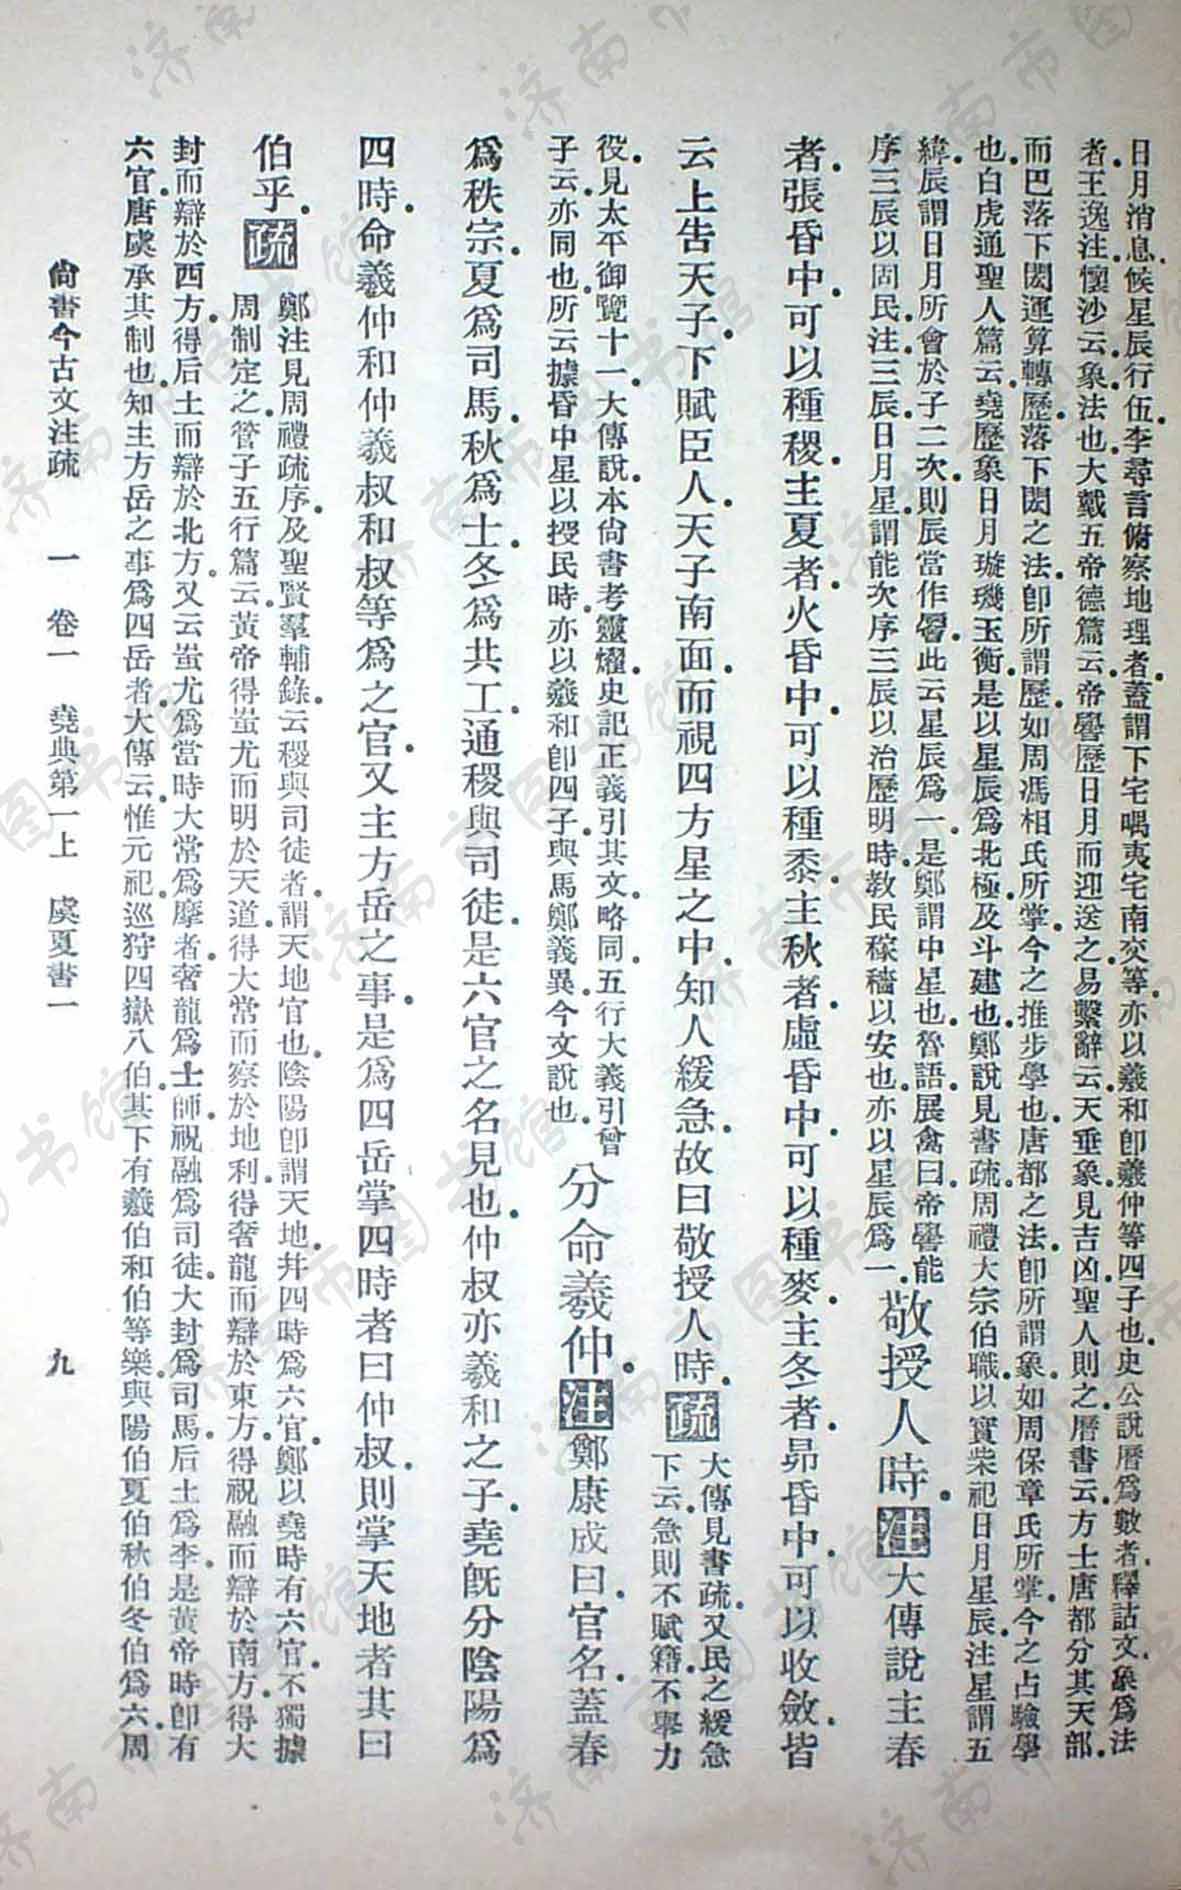 日月消息。候星辰行伍。李尋言俯察地理者。蓋謂下宅嵎夷宅南交等。亦以羲和卽羲仲等四子也。史公說曆爲數者。釋詁文。象爲法
者。王逸注懷沙云。象。法也。大戴五帝德篇云。帝嚳歷日月而迎送之。易繫辭云。天垂象。見吉凶。聖人則之。曆書云。方士唐都分其天部。
而巴落下閎運算轉歷。落下閎之法。卽所謂歷。如周馮相氏所掌。今之推步學也。唐都之法。卽所謂象。如周保章氏所掌。今之占驗學
也。白虎通聖人篇云。堯歷象日月。璇璣玉衡。是以星辰爲北極。及斗建也。鄭說見書疏。周禮大宗伯職。以實柴祀日月星辰。注。星謂五
緯。辰謂日月所會於子二次。則辰當作㫳。此云星辰爲一。是鄭謂中星也。魯語。展禽曰。帝嚳能
序三辰以固民。注。三辰。日月星。謂能次序三辰。以治歷明時。教民稼穡以安也。亦以星辰爲一。
敬授人時。注大傳說主春
者。張昏中。可以種稷。主夏者。火昏中。可以種黍。主秋者。虛昏中。可以種麥。主冬者。昴昏中。可以收斂。皆
云上告天子。下賦臣人。天子南面。而視四方星之中。知人緩急。故曰敬授人時。疏
大傳見書疏。又民之緩急
下云。急則不賦籍。不舉力
役。見太平御覽十一。大傳說。本尚書考靈燿。史記正義引其文。略同。五行大義引曾
子云。亦同也。所云據昏中星以授民時。亦以羲和卽四子。與馬鄭義異。今文說也。
分命羲仲。注鄭康成曰。官名。蓋春
爲秩宗。夏爲司馬。秋爲士。冬爲共工。通稷與司徒。是六官之名見也。仲叔亦羲和之子。堯旣分陰陽爲
四時。命羲仲和仲羲叔和叔等爲之官。又主方岳之事。是爲四岳。掌四時者曰仲叔。則掌天地者其曰
伯乎。疏
鄭注見周禮疏序。及聖賢羣輔錄。云稷與司徒者。謂天地官也。陰陽卽謂天地。幷四時爲六官。鄭以堯時有六官。不獨據
周制定之。管子五行篇云。黃帝得蚩尤而明於天道。得大常而察於地利。得奢龍而辯於東方。得祝融而辯於南方。得大
封而辯於西方。得后土而辯於北方。又云。蚩尤爲當時。大常爲廩者。奢龍爲士師。祝融爲司徒。大封爲司馬。后土爲李。是黃帝時卽有
六官。唐虞承其制也。知主方岳之事爲四岳者。大傳云。惟元祀。巡狩四嶽八伯。其下有羲伯和伯等樂。與陽伯夏伯秋伯冬伯爲六。周
尙書今古文注疏　一　卷一　堯典第一上　虞夏書一　九